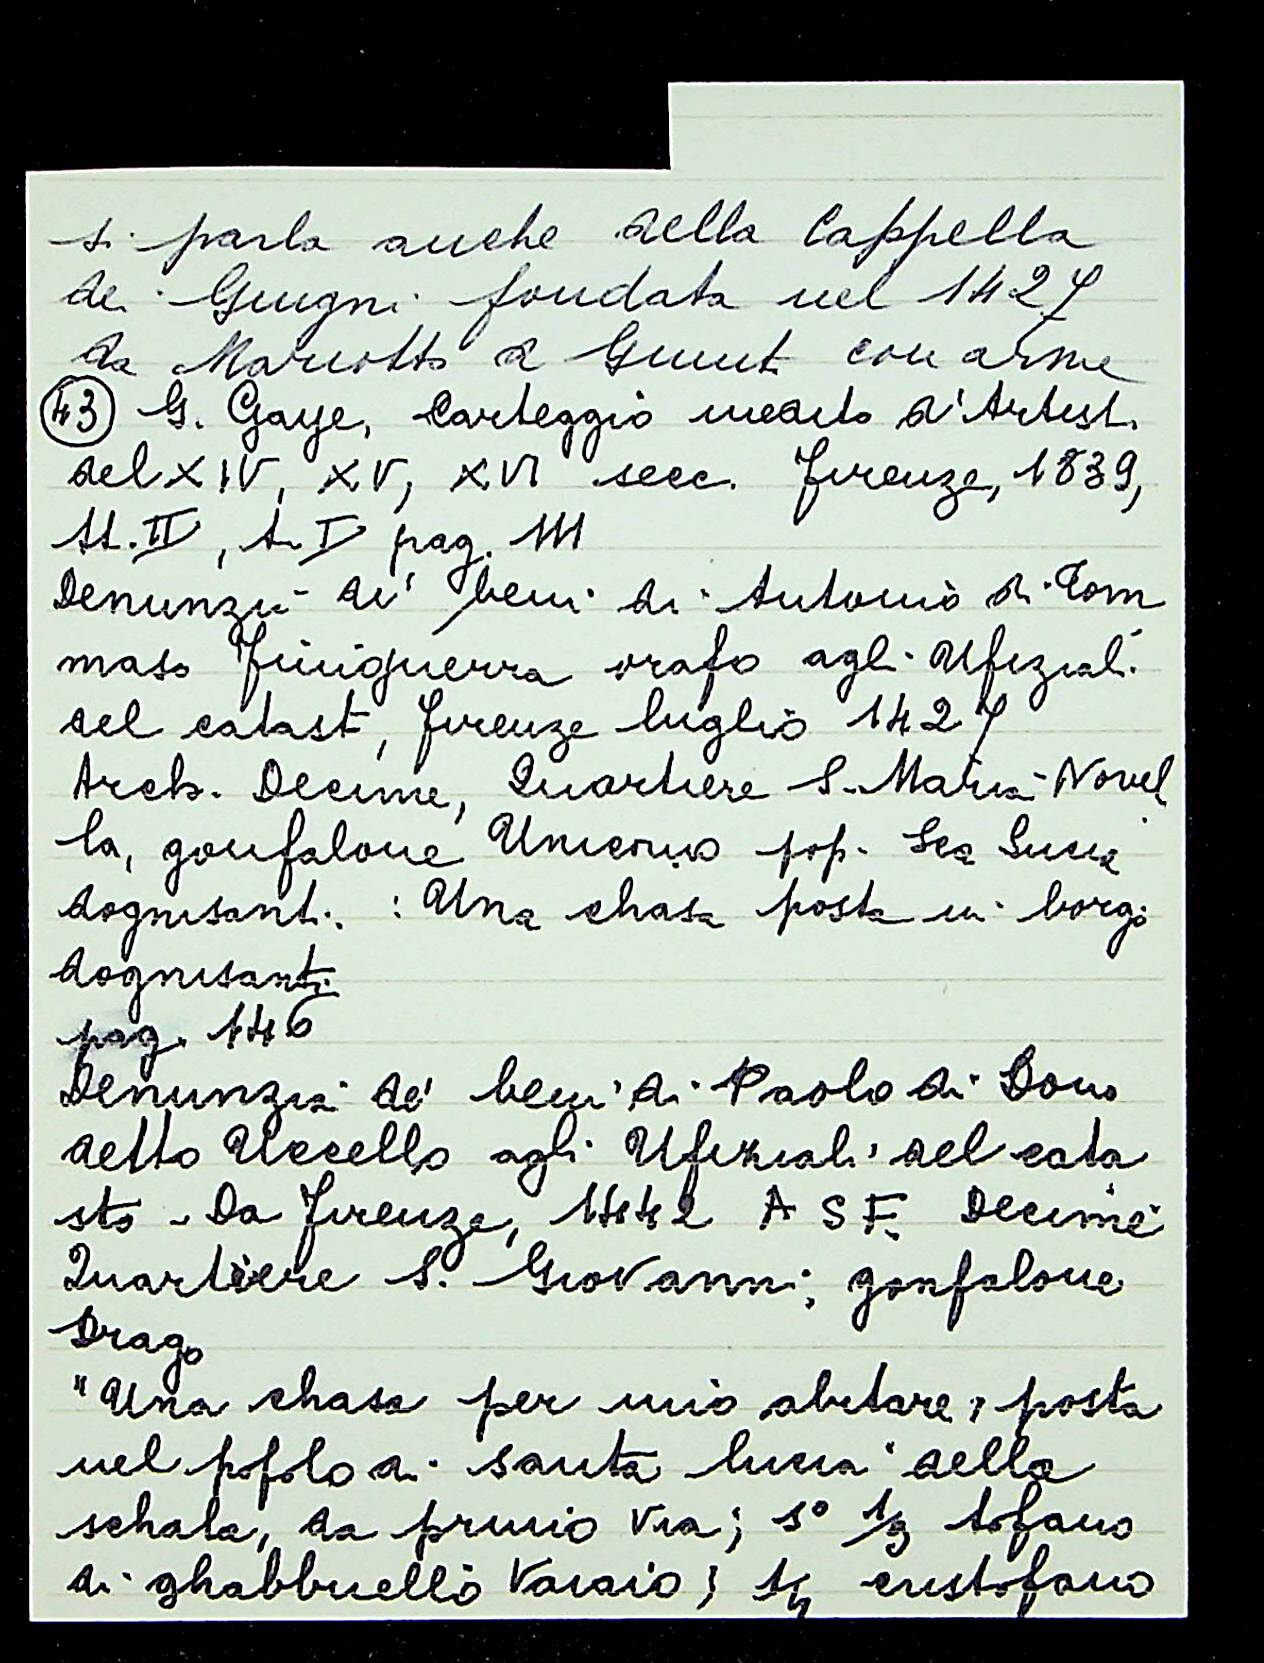 si parla anche della Cappella
dei Giugni fondata nel 1427
da Mariotto e Giunt con arme
43 G. Gaye, Carteggio inedito d'Artisti
del XIV, XV, XVI secc. Firenze, 1839,
tt. II, t. I pag. 111
Denunzia di' beni di Antonio di Tom
maso Finiguerra orafo agli Ufiziali
del catast, Firenze luglio 1427
Arch. Decime, Quartiere S. Maria Novel
la, gonfalone Unicorno pop. Sca Lucia
dognisanti : Una chasa posta in borgo
dognisanti
pag. 146
Denunzia de' beni di Paolo di Dono
detto Uccello agli Ufiziali del cata
sto - Da Firenze, 1442 A S F. Decime
Quartiere S. Giovanni, gonfalone
Drago
"Una chasa per mio abitare, posta
nel popolo di santa lucia della
schala, da primo via; 1/3 tofano
di ghabbriello Vaiaio; 1/4 cristofano